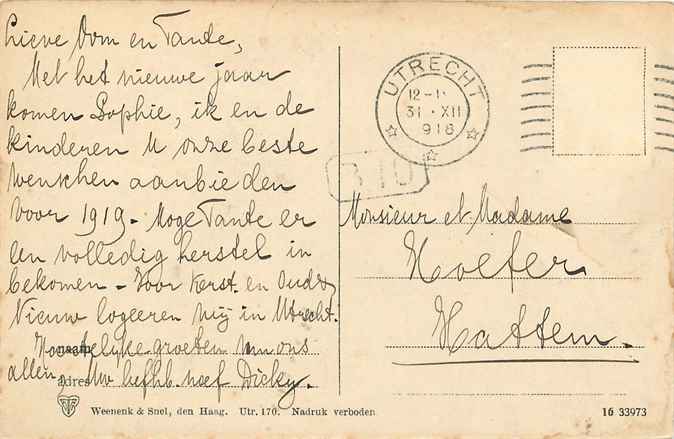 Lieve Oom en Tante,
Met het nieuwe jaar
komen Sophie, ik en de
kinderen U onze beste
wenschen aanbieden
voor 1919. Moge Tante er
een volledig herstel in
bekomen. Voor Kerst. en Oud &
Nieuw logeeren wij in Utrecht.
Hartelijke groeten van ons
allen, Uw liefhb. neef Dicky.
naam
adres
UTRECHT
12-1
31 XII
918
Monsieur et Madame
Hoefer
Hattem.
Weenenk & Snel, den Haag. Utr. 170. Nadruk verboden
16 33973